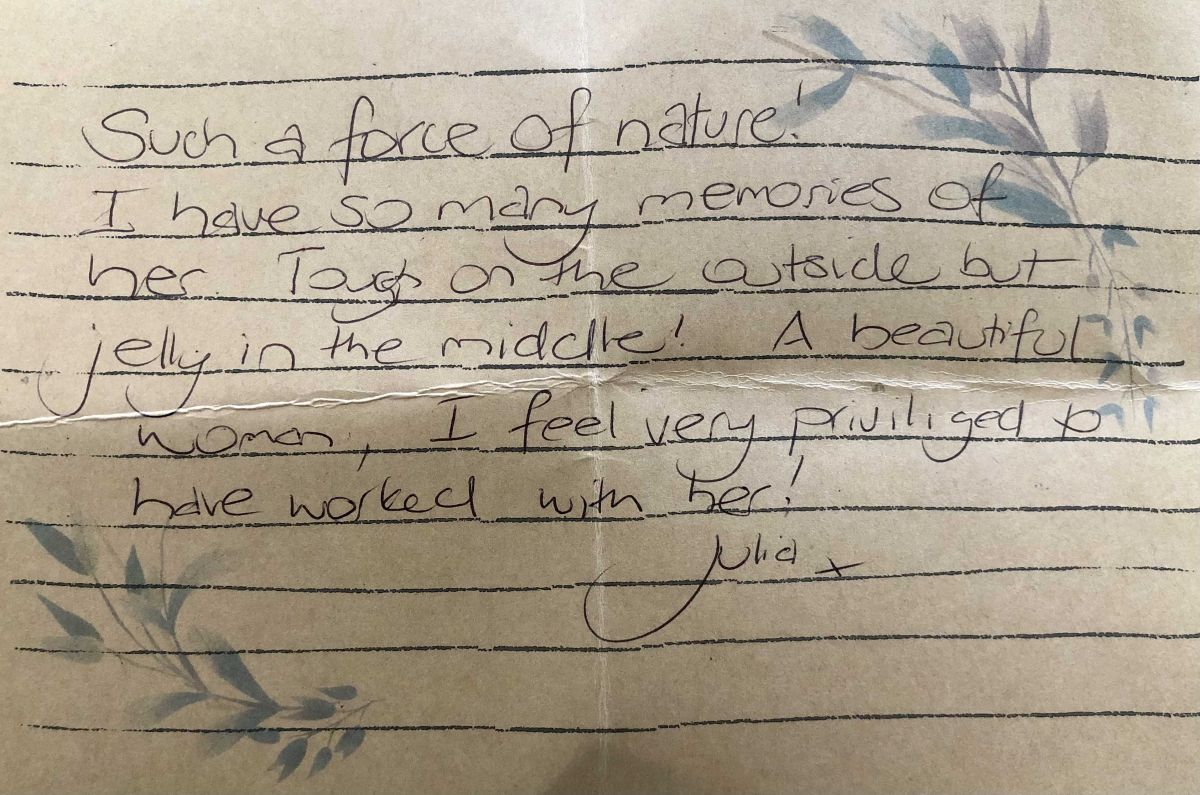 Such a force of nature!
I have so many memories of
her. Tough on the outside but
jelly in the middle! A beautiful
woman, I feel very priviliged to
have worked with her!
Julia x